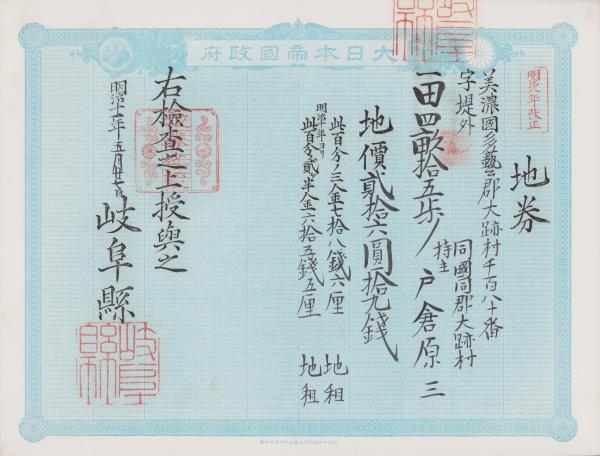 大日本帝國政府
明治八年改正
地券
美濃國多藝郡大跡村千百八十番
字堤外
同國同郡大跡村
持主
一田四畝拾五歩 戸倉原三
地價貳拾六圓拾九錢
此百分ノ三金七拾八錢六厘 地租
明治十年ヨリ
此百分ノ貳半金六拾五錢五厘 地租
右檢査之上授與之
明治十一年五月廿七日
岐阜縣